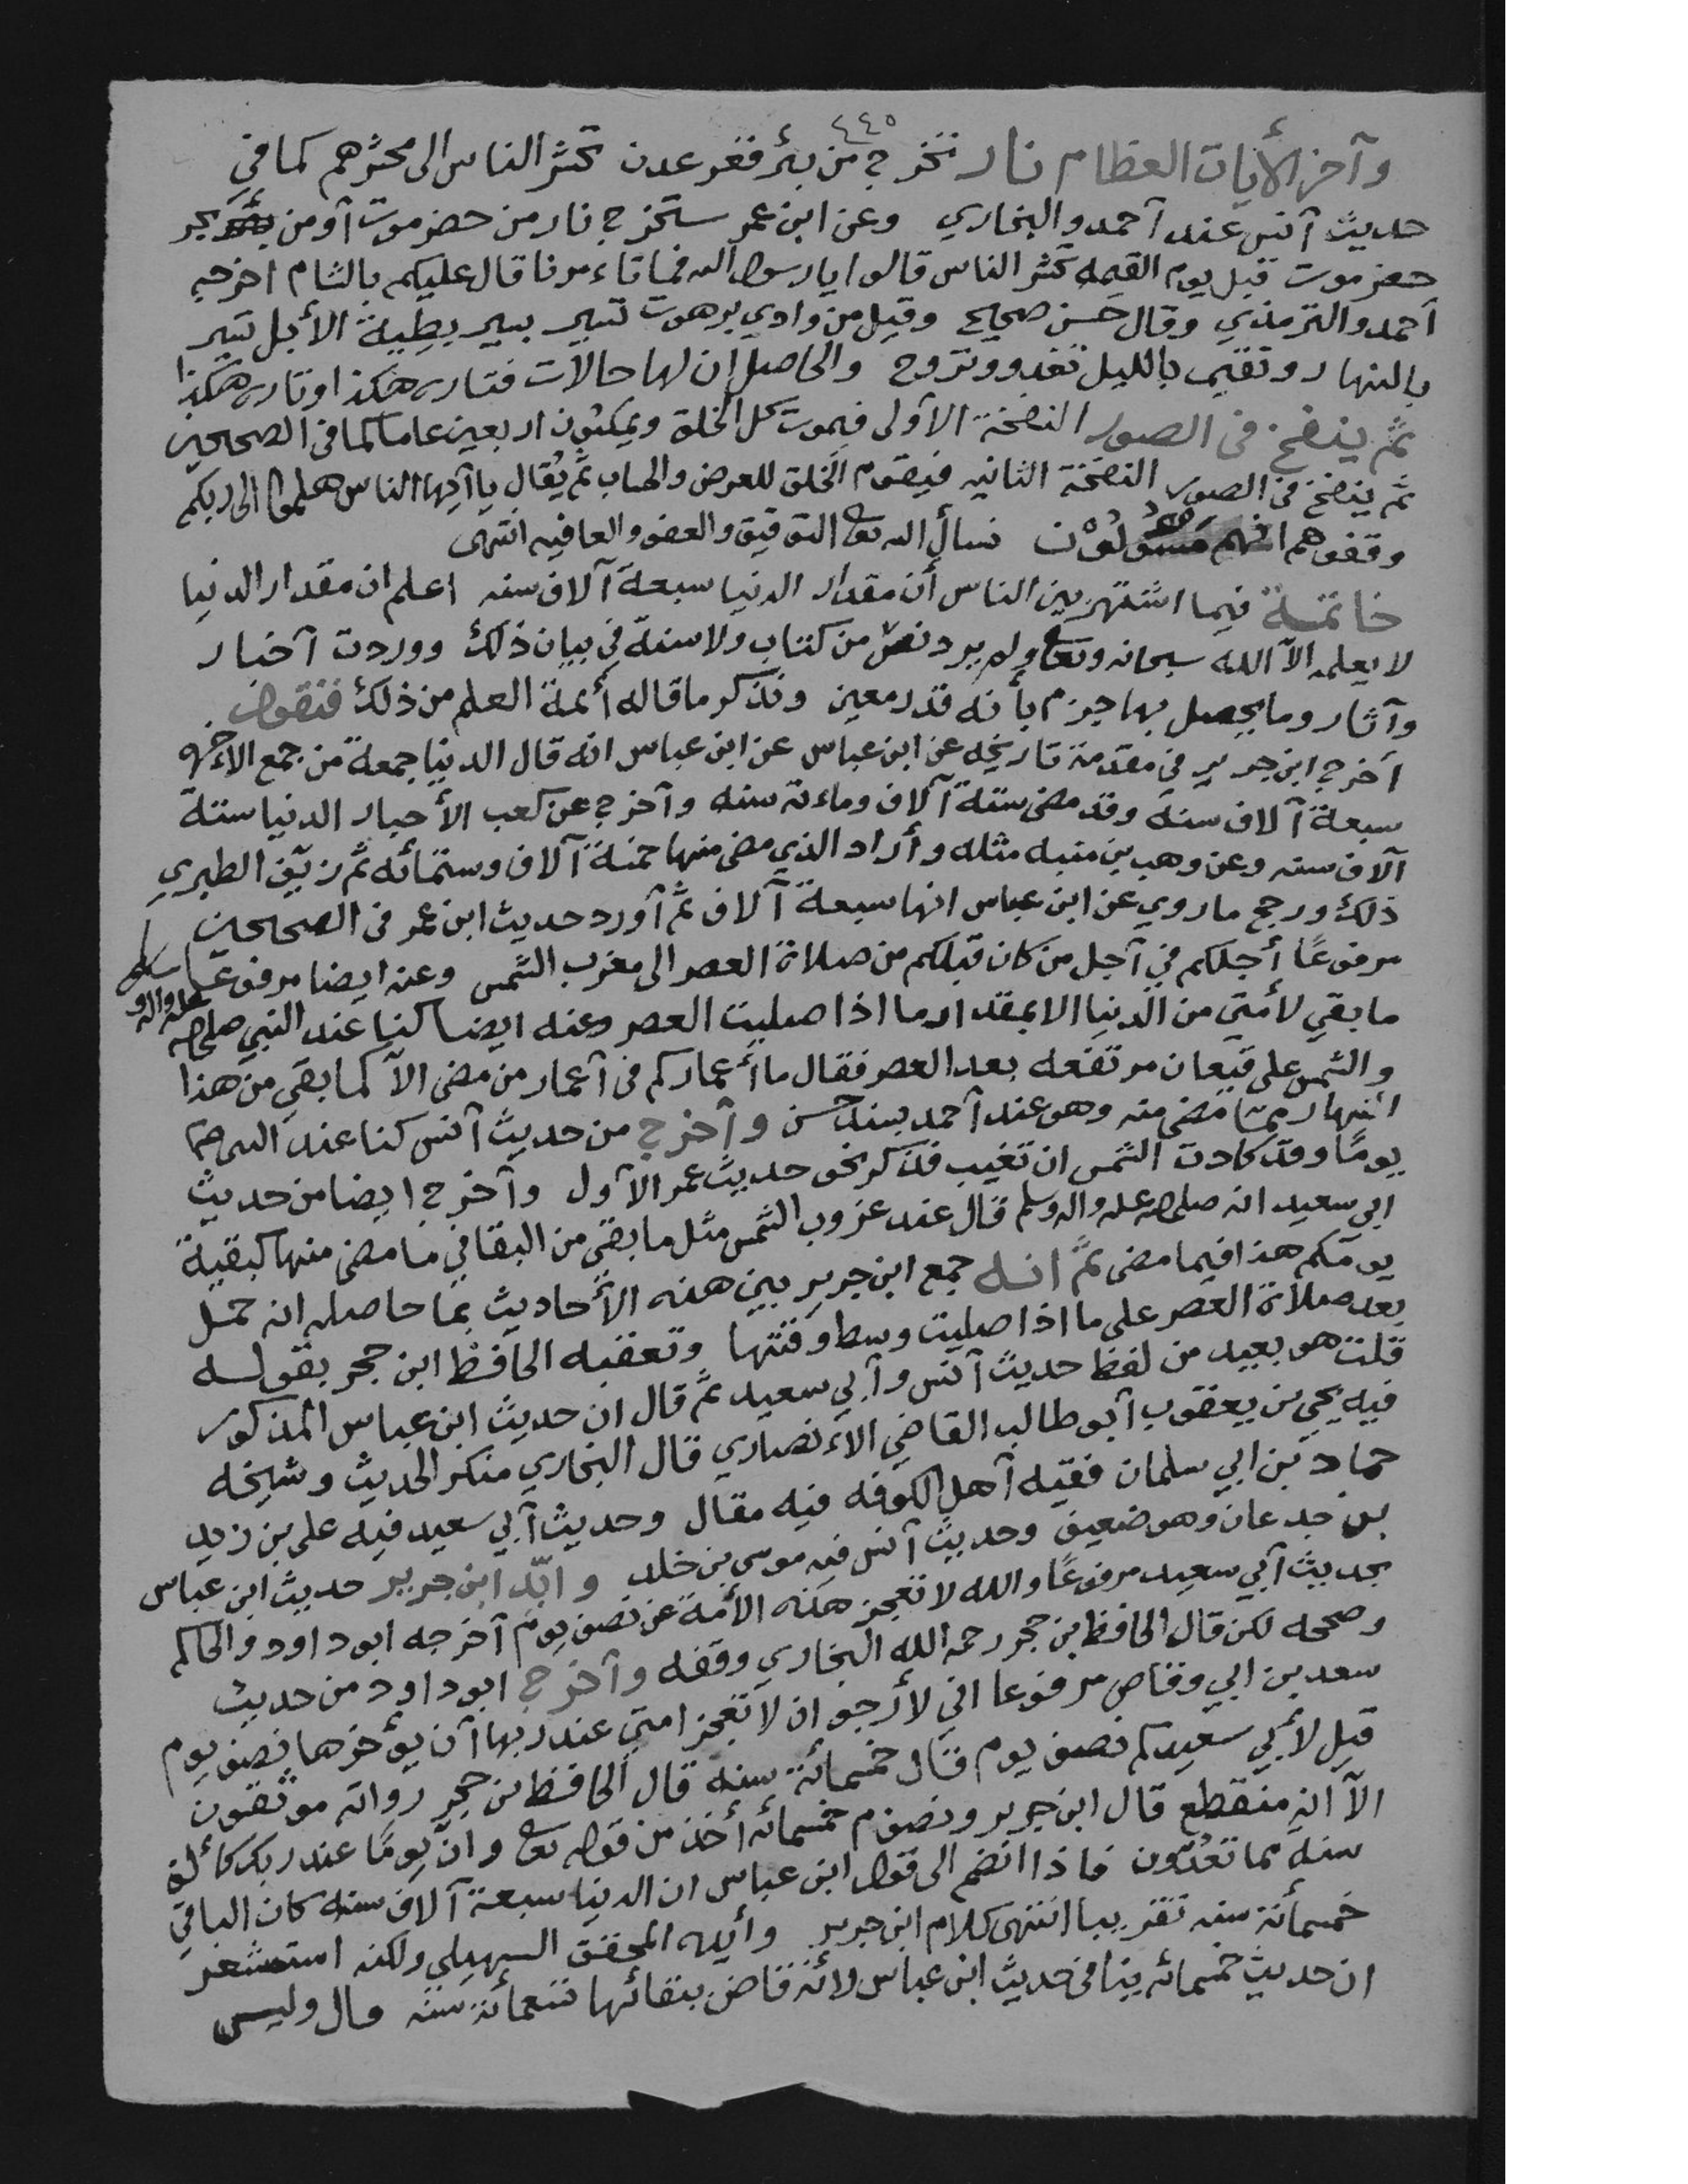 ٤٤٥
وآخر الأيات العظام نار تخرج من بئر قعر عدن تحشر الناس الى محشرهم كما في
حديث آنس عند آحمد والبخاري وعن ابن عمر ستخرج نار من حضرموت آو من بحر
حضرموت قبل يوم القيمه تحشر الناس قالوا يا رسول الله فما تاءمرنا قال عليكم بالشام اخرجه
آحمد والترمذي وقال حسن صحيح وقيل من وادي برهوت تسير بسير بطيئة الأبل تسير
بالنهار وتقيم بالليل تغدو وتروح والحاصل إن لها حالات فتاره هكذا وتاره هكذا
ثم ينفخ في الصور النفخة الآولى فيموت كل الخلق ويمكثون اربعين عاما كما في الصحيحين
ثم ينفخ في الصور النفخة الثانيه فيقوم الخلق للعرض والحساب ثم يُقال يا آيها الناس هلموا الى ربكم
وقفوهم انهم مسئولون نسأل الله تعالى التوفيق والعفو والعافيه انتهى
خاتمة فيما اشتهر بين الناس أن مقدار الدنيا سبعة آلاف سنه اعلم ان مقدار الدنيا
لا يعلمه الآ الله سبحانه وتعالى ولم يرد نصٌ من كتاب ولا سنة في بيان ذلك ووردت آخبار
وآثار وما يحصل بها جزم بأنه قدر معين ونذكر ما قاله أئمة العلم من ذلك فنقول
آخرج ابن جرير في مقدمة تاريخه عن ابن عباس عن ابن عباس انه قال الدنيا جمعة من جمع الآخره
سبعة آلاف سنة وقد مضى ستة آلاف وماءته سنه وآخرج عن كعب الأحبار الدنيا ستة
آلاف سنه وعن وهب بن منبه مثله وأراد الذي مضى منها خمسة آلاف وستمائه ثم زيّف الطبري
ذلك ورجح ما روي عن ابن عباس انها سبعة آلاف ثم آورد حديث ابن عمر في الصحيحين
مرفوعًا أجلكم في آجل من كان قبلكم من صلاة العصر الى مغرب الشمس وعنه ايضا مرفوعًا
ما بقي لأمتي من الدنيا الا بمقدار ما اذا صليت العصر وعنه ايضا كنا عند النبي صلى الله عليه واله وسلم
والشمس على قيعان مرتفعه بعد العصر فقال ما أعماركم في آعمار من مضى الآ كما بقي من هذا
النهار مما مضى منه وهو عند آحمد بسند حسن وآخرج من حديث آنس كنا عند
يومًا وقد كادت الشمس ان تغيب فذكر نحو حديث عمر الآول وآخرج ايضا من حديث
ابي سعيد انه صلى الله عليه واله وسلم قال عند غروب الشمس مثل ما بقي من البقا في ما مضى منها كبقية
يومكم هذا فيما مضى ثم انه جمع ابن جرير بين هذه الآحاديث بما حاصله انه حمل
بعد صلاة العصر على ما اذا صليت وسط وقتها وتعقبه الحافظ ابن حجر بقوله
قلت هو بعيد من لفظ حديث آنس وآبي سعيد ثم قال ان حديث ابن عباس المذكور
فيه يحي بن يعقوب آبو طالب القاضي الاءنصاري قال البخاري منكر الحديث وشيخه
حماد بن ابي سلمان فقيه آهل الكوفه فيه مقال وحديث آبي سعيد فيه علي بن زيد
بن جدعان وهو ضعيف وحديث آنس فيه موسى بن خلف وايّد ابن جرير حديث ابن عباس
بحديث آبي سعيد مرفوعًا والله لا تعجز هذه الأمة عن نصف يوم آخرجه ابو داود والحاكم
وصححه لكن قال الحافظ بن حجر رحمه الله البخاري وقفه وآخرج ابو داود من حديث
سعد بن ابي وقاص مرفوعا اني لأرجو ان لا تعجز امتي عند ربها آن يؤخرها نصف يوم
قيل لأبي سعيد كم نصف يوم قال خمسمائة سنة قال الحافظ بن حجر رواته موثقون
الآ انه منقطع قال ابن جرير ونصف يوم خمسمائه أخذ من قوله تعالى وانّ يومًا عند ربك كألف
سنة مما تعُدّون فاذا انضم الى قول ابن عباس ان الدنيا سبعة آلاف سنه كان الباقي
خمسمأئة سنه تقريبا انتهى كلام ابن جرير وأيده المحقق السهيلي ولكنه استشعر
ان حديث خمسمائه ينافي حديث ابن عباس لأنه قاض ببقائها تسعمائة سنه قال وليس